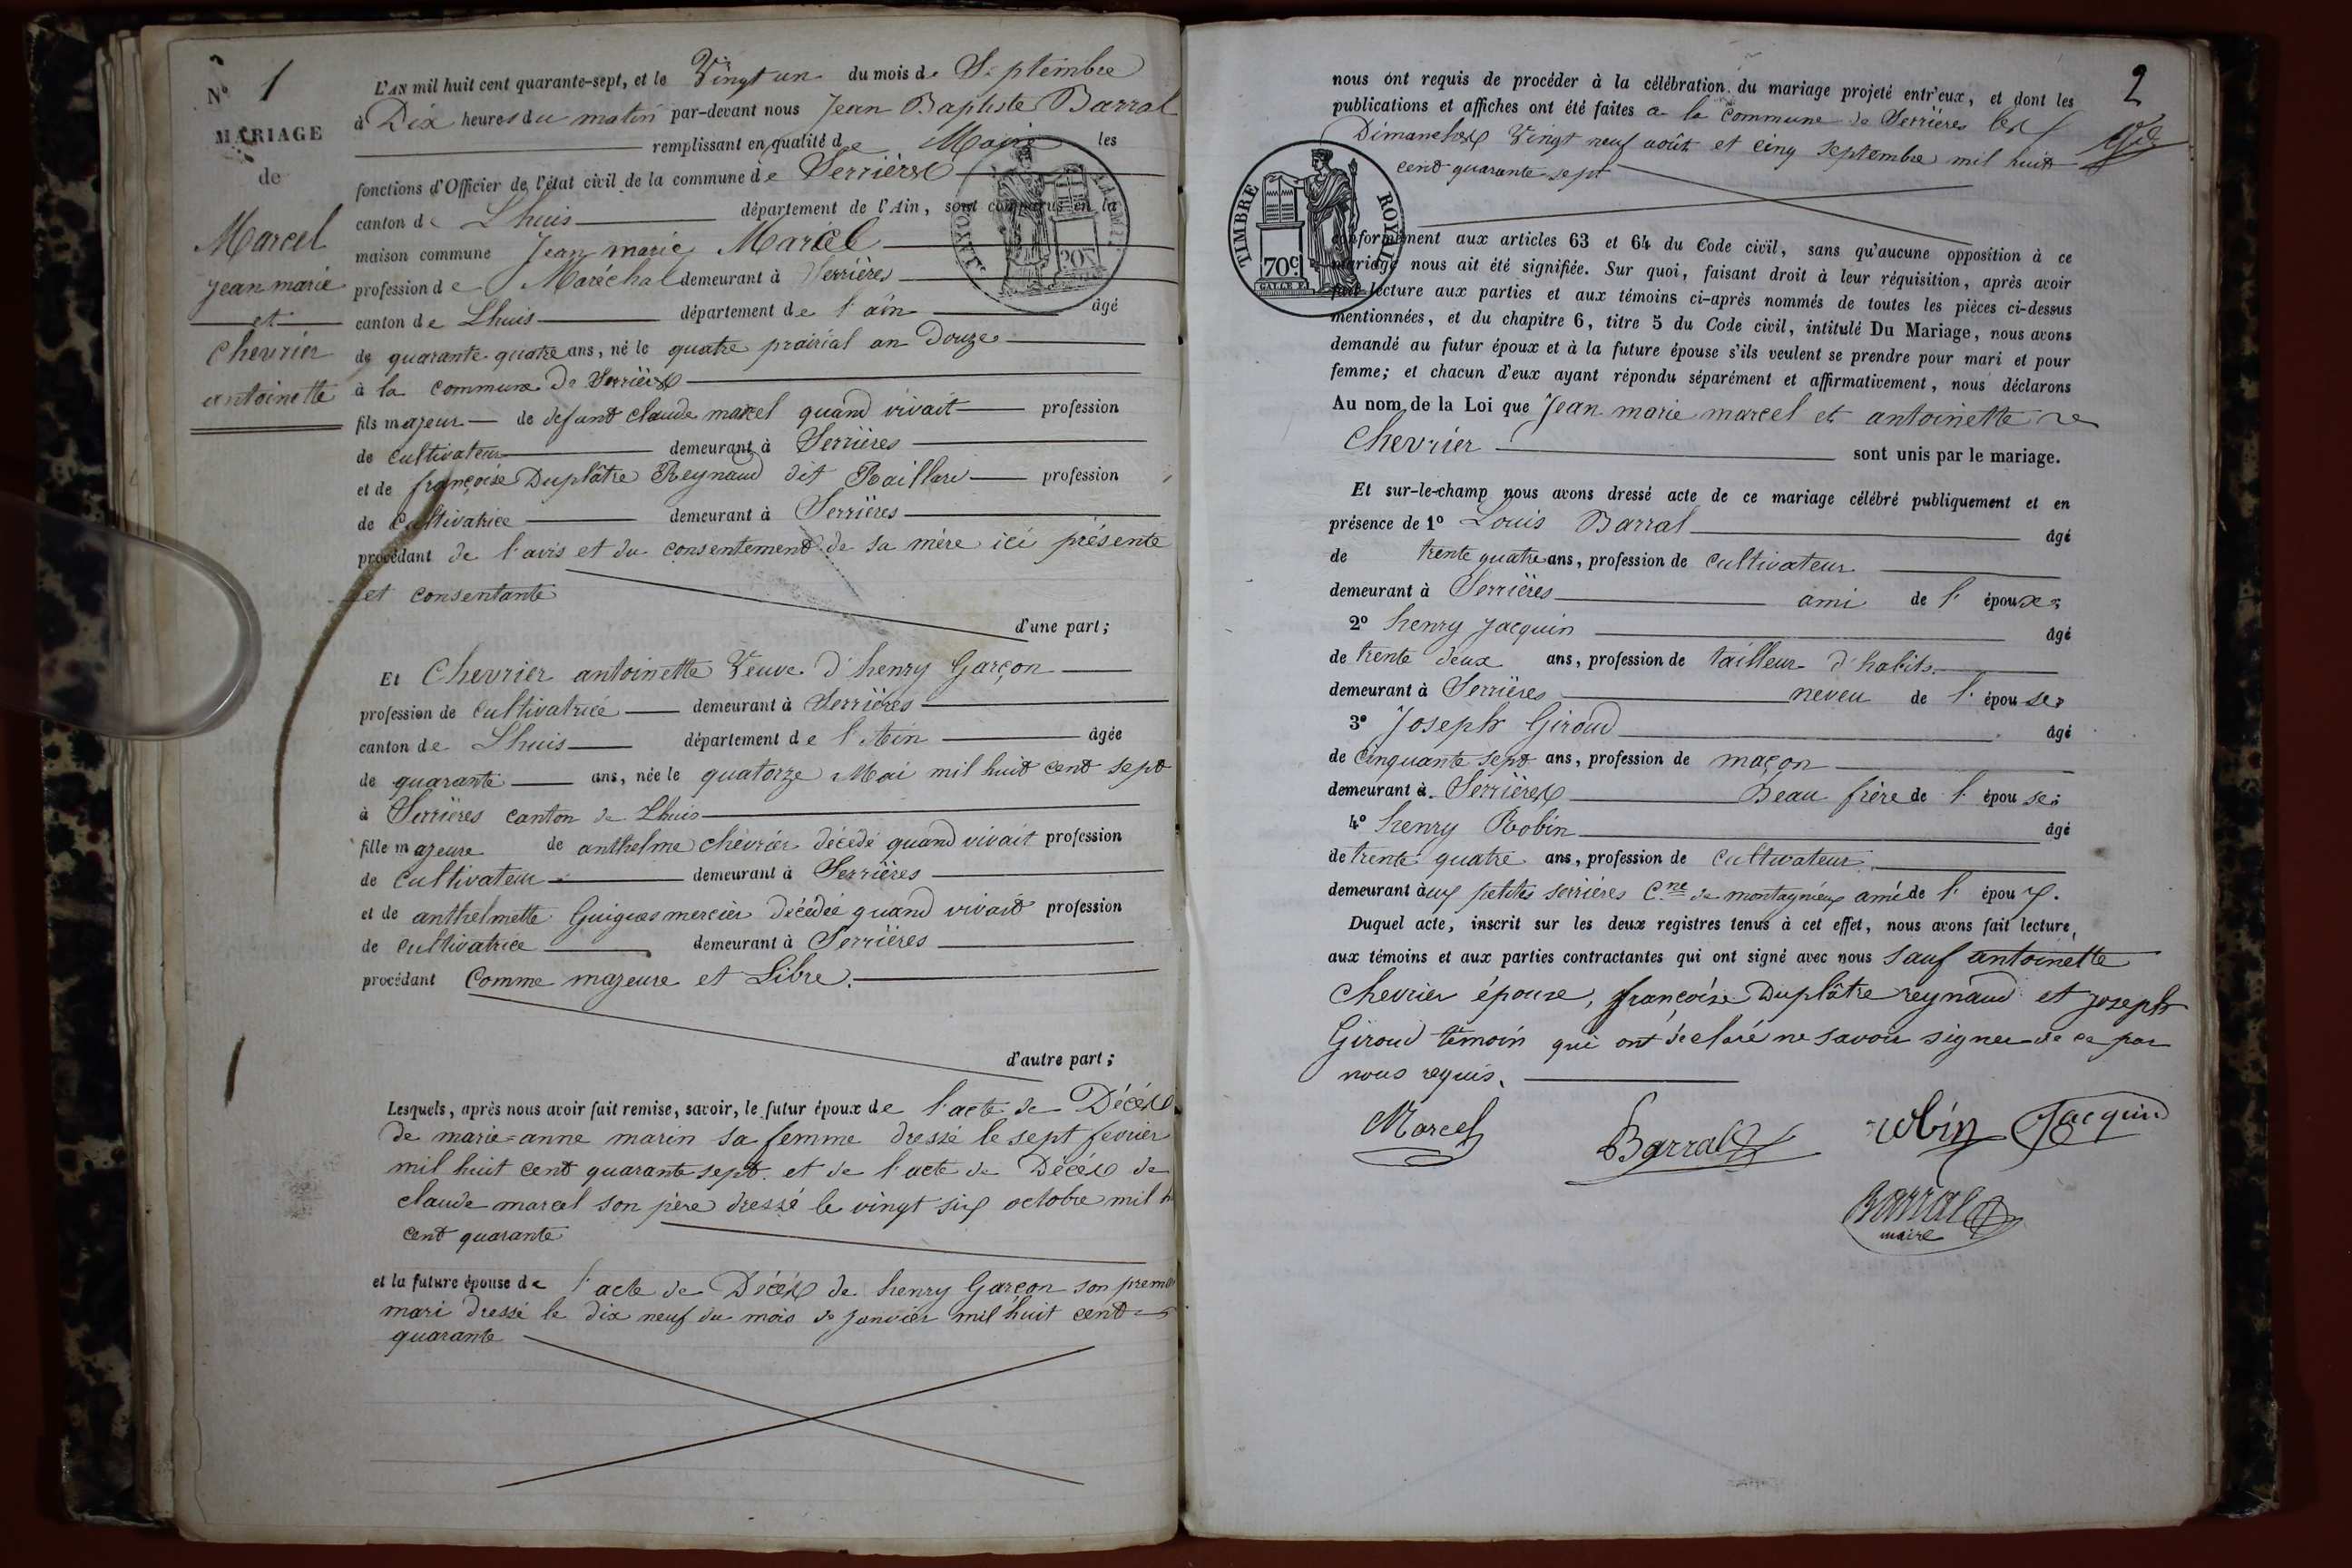 N° 1
MARIAGE
de
Marcel
Jean marie
et
Chevrier
antoinette
L'AN mil huit cent quarante-sept, et le Vingt un du mois de Septembre
à Dix heures du matin par-devant nous Jean Baptiste Barral
remplissant en qualité de Maire les
fonctions d'Officier de l'état civil de la commune de Serrières
canton de Lhuis département de l'Ain, sont comparus en la
maison commune Jean marie Marcel
profession de Maréchal demeurant à Serrières
canton de Lhuis département de l'ain âgé
de quarante quatre ans, né le quatre prairial an Douze
à la commune de Serrières
fils majeur de defunt claude marcel quand vivait profession
de cultivateur demeurant à Serrières
et de françoise Duplâtre Reynaud dit Raillard profession
de Cultivatrice demeurant à Serrières
procédant de l'avis et du consentement de sa mère ici présente
et consentante
d'une part;
Et Chevrier antoinette Veuve d'henry Garçon
profession de Cultivatrice demeurant à Serrières
canton de Lhuis département de l'Ain âgée
de quarante ans, née le quatorze Mai mil huit cent sept
à Serrières canton de Lhuis
fille majeure de anthelme chevrier décédé quand vivait profession
de Cultivateur demeurant à Serrières
et de anthelmette Guigues mercier décédée quand vivait profession
de cultivatrice demeurant à Serrières
procédant Comme majeure et Libre.
d'autre part;
Lesquels, après nous avoir fait remise, savoir, le futur époux de l'acte de Décès
de marie=anne marin sa femme dressé le sept fevrier
mil huit cent quarante sept. et de l'acte de Décès de
claude marcel son père dressé le vingt six octobre mil h
cent quarante
et la future épouse de l'acte de Décès de henry Garçon son premi
mari dressé le dix neuf du mois de Janvier mil huit cent
quarante
2
nous ont requis de procéder à la célébration du mariage projeté entr'eux, et dont les
publications et affiches ont été faites a la Commune de Serrières les
Dimanches Vingt neuf août et cinq septembre mil huit
cent quarante sept
TIMBRE ROYAL
70c
conformément aux articles 63 et 64 du Code civil, sans qu'aucune opposition à ce
mariage nous ait été signifiée. Sur quoi, faisant droit à leur réquisition, après avoir
fait lecture aux parties et aux témoins ci-après nommés de toutes les pièces ci-dessus
mentionnées, et du chapitre 6, titre 5 du Code civil, intitulé Du Mariage, nous avons
demandé au futur époux et à la future épouse s'ils veulent se prendre pour mari et pour
femme; et chacun d'eux ayant répondu séparément et affirmativement, nous déclarons
Au nom de la Loi que Jean marie marcel et antoinette
Chevrier sont unis par le mariage.
Et sur-le-champ nous avons dressé acte de ce mariage célébré publiquement et en
présence de 1° Louis Barral âgé
de trente quatre ans, profession de Cultivateur
demeurant à Serrières ami de l'épouse;
2° henry Jacquin âgé
de trente deux ans, profession de tailleur d'habits
demeurant à Serrières neveu de l'épouse;
3° Joseph Giroud âgé
de Cinquante sept ans, profession de maçon
demeurant à Serrières Beau frère de l'épouse;
4° henry Robin âgé
de trente quatre ans, profession de Cultivateur
demeurant aux petites serrières C.ne de montagnieux ami de l'époux.
Duquel acte, inscrit sur les deux registres tenus à cet effet, nous avons fait lecture,
aux témoins et aux parties contractantes qui ont signé avec nous sauf antoinette
Chevrier épouse, françoise Duplâtre reynaud et joseph
Giroud témoin qui ont déclaré ne savoir signer de ce par
nous requis.
Marcel Barral Robin Jacquin
Barral
maire